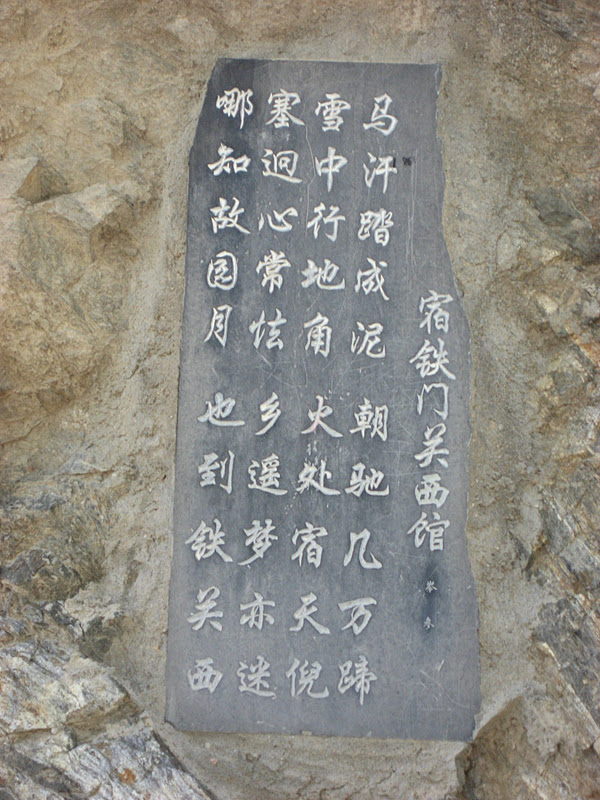 宿铁门关西馆
岑参
马汗踏成泥 朝驰几万蹄
雪中行地角 火处宿天倪
塞迥心常怯 乡遥梦亦迷
哪知故园月 也到铁关西